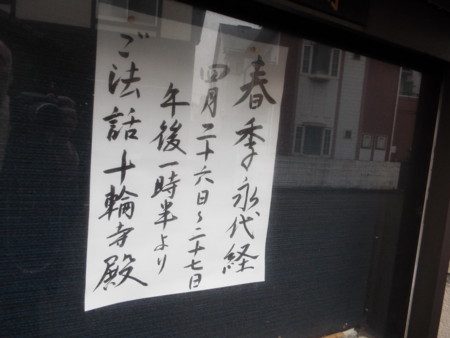 春季永代経
四月二十六日〜二十七日
午後一時半より
ご法話十輪寺殿